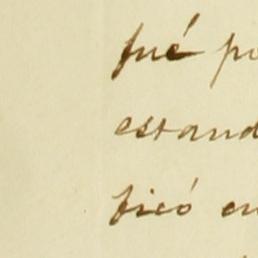 fué po
estand
ficó en